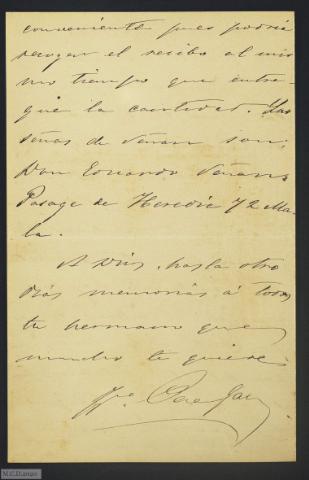 conveniente pues podria
recoger el recibo al mis
mo tiempo que entre
gue la cantidad. Las
señas de Veñan son,
Don Eduardo Veñan
Pasage de Heredia 72 Mala
ga.
A Dios, hasta otro
dias memorias á todos
tu hermano que
mucho te quiere
M.C.D.2022